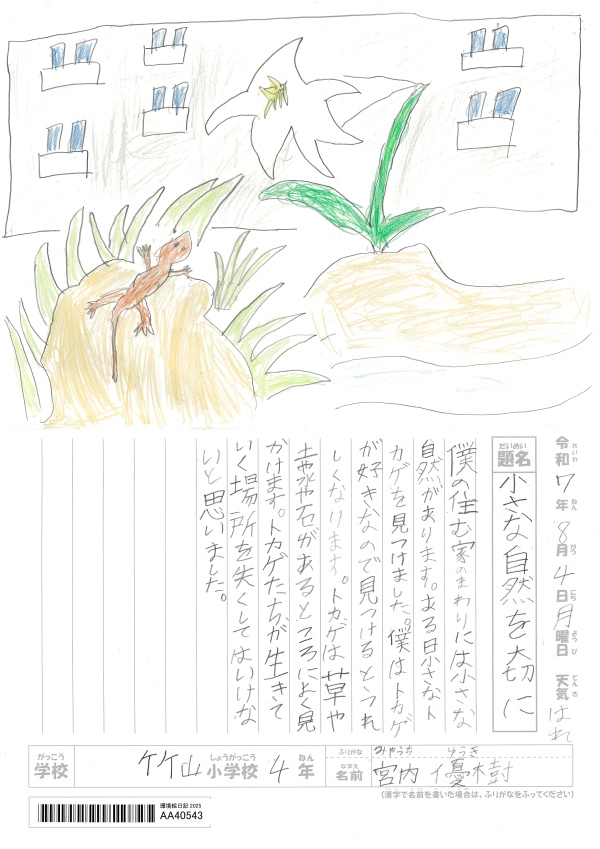 令和7年8月4日月曜日 天気はれ
れいわ ねん がつ にち ようび てんき
だいめい
題名 小さな自然を大切に
僕の住む家のまわりには小さな
自然があります。ある日小さなト
カゲを見つけました。僕はトカゲ
が好きなので見つけるとうれ
しくなります。トカゲは草や
土や水や石があるところによく見
かけます。トカゲたちが生きて
いく場所を失くしてはいけな
いと思いました。
がっこう しょうがっこう ねん
学校 竹山小学校 4年
ふりがな みやうち ゆうき
なまえ
名前 宮内 優樹
(漢字で名前を書いた場合は、ふりがなをふってください)
環境絵日記 2025
AA40543